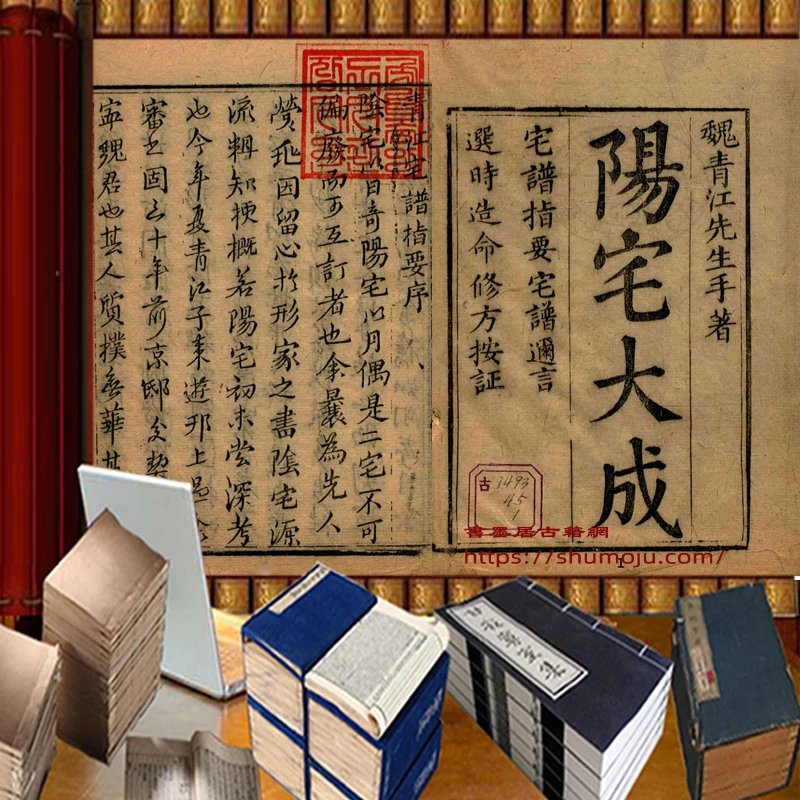 魏青江先生手著
陽宅大成
宅譜指要宅譜邇言
選時造命修方按証
古 1493
45
1
青江宅譜指要序
陰宅以日奇陽宅以月偶是二宅不可
偏廢而可互訂者也余曩為先人
因留心於形家之書陰宅源
流輯知梗概若陽宅初未嘗深考
也今年夏青江子来遊邗上
審之固三十年前京邸
魏君也其人質撲無華其
書墨居古籍網
https://shumoju.com/
1